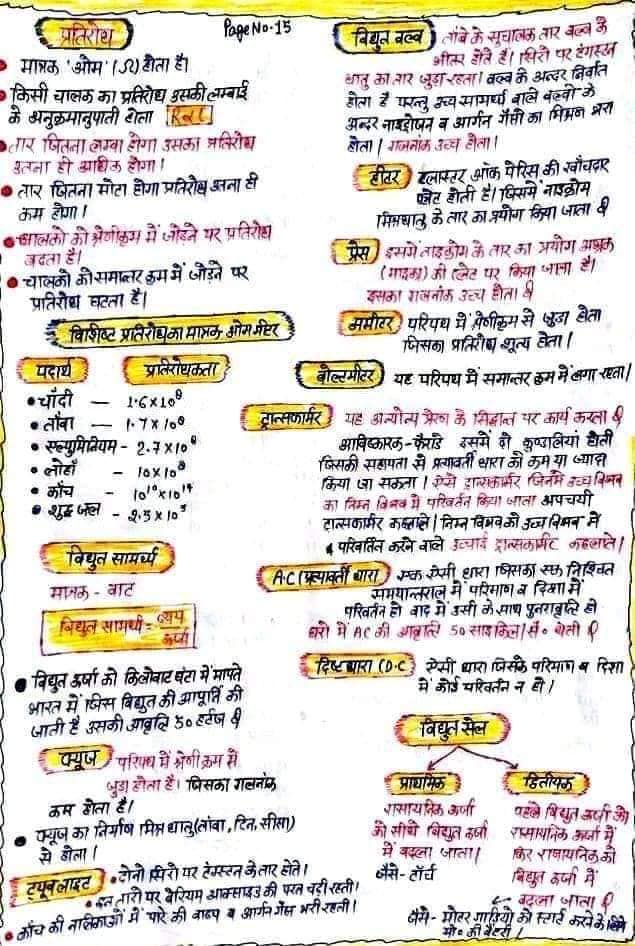 Page No-15
प्रतिरोध
• मात्रक 'ओम' (Ω) होता है।
• किसी चालक का प्रतिरोध उसकी लम्बाई
के अनुक्रमानुपाती होता R∝L
• तार जितना लम्बा होगा उसका प्रतिरोध
उतना ही अधिक होगा।
• तार जितना मोटा होगा प्रतिरोध उतना ही
कम होगा।
• चालको को श्रेणीक्रम में जोड़ने पर प्रतिरोध
बढता है।
• चालको को समान्तर क्रम में जोड़ने पर
प्रतिरोध घटता है।
विशिष्ट प्रतिरोध का मात्रक ओम मीटर
पदार्थ प्रतिरोधकता
• चाँदी — 1.6×10⁸
• तांबा — 1.7×10⁸
• एल्युमिनियम - 2.7×10⁸
• लोहाँ — 10×10⁸
• काँच — 10¹⁰×10¹⁴
• शुद्ध जल - 2.5×10⁵
विद्युत सामर्थ्य
मात्रक - वाट
विद्युत सामर्थ्य = व्यय
ऊर्जा
• विद्युत ऊर्जा को किलोवाट घंटा में मापते
भारत में जिस विद्युत की आपूर्ति की
जाती है उसकी आवृत्ति 50 हर्टज है
फ्यूज परिपथ में श्रेणी क्रम में
जुडा होता है। जिसका गलनांक
कम होता है।
• फ्यूज का निर्माण मिश्रधातु (तांबा, टिन, सीसा)
से होता।
ट्यूब लाइट • दोनो सिरो पर टंगस्टन के तार होते।
• इन तारो पर बेरियम आक्साइड की परत चढ़ी रहती।
• काँच की नालिकाओं में पारे की वाष्प व आर्गन गैस भरी रहती।
विद्युत बल्व तांबे के सुचालक तार बल्व के
भीतर होते है। सिरो पर टंगस्टन
धातु का तार जुडा रहता। बल्व के अन्दर निर्वात
होता है परन्तु उच्च सामर्थ्य वाले बल्वो के
अन्दर नाइट्रोजन व आर्गन गैसो का मिश्रण भरा
होता। गलनांक उच्च होता।
हीटर प्लास्टर ऑफ पेरिस की खाँचदार
प्लेट होती है। जिसमें नाइक्रोम
मिश्रधातु के तार का प्रयोग किया जाता है
प्रेस इसमें नाइक्रोम के तार का प्रयोग अभ्रक
(माइका) की प्लेट पर किया जाता है।
इसका गलनांक उच्च होता है
अमीटर परिपथ में श्रेणीक्रम से जुडा होता
जिसका प्रतिरोध शून्य होता।
वोल्टमीटर यह परिपथ में समान्तर क्रम में लगा रहता।
ट्रान्सफार्मर यह अन्योन्य प्रेरण के सिद्धान्त पर कार्य करता है
आविष्कारक - फैराडे इसमें दो कुण्डलियां होती
जिसकी सहायता से प्रत्यावर्ती धारा को कम या ज्यादा
किया जा सकता। ऐसे ट्रान्सफार्मर जिनमें उच्च विभव
का निम्न विभव में परिवर्तन किया जाता अपचयी
ट्रान्सफार्मर कहलाते। निम्न विभव को उच्च विभव में
परिवर्तित करने वाले उच्चाई ट्रान्सफार्मर कहलाते।
A.C (प्रत्यावर्ती धारा) एक ऐसी धारा जिसका एक निश्चित
समयान्तराल में परिमाण व दिशा में
परिवर्तन हो बाद में उसी के साथ पुनरावृत्ति हो
घरो में AC की आवृत्ति 50 साइकिल/से० होती है
दिष्ट धारा (D.C) ऐसी धारा जिसके परिमाण व दिशा
में कोई परिवर्तन न हो।
विद्युत सेल
प्राथमिक द्वितीयक
रासायनिक ऊर्जा
को सीधे विद्युत ऊर्जा
में बदला जाता।
जैसे- टॉर्च
पहले विद्युत ऊर्जा को
रासायनिक ऊर्जा में
फिर रासायनिक को
विद्युत ऊर्जा में
बदला जाता है
जैसे- मोटर गाड़ियो को स्टार्ट करने के लिये
मो० की बैटरी।